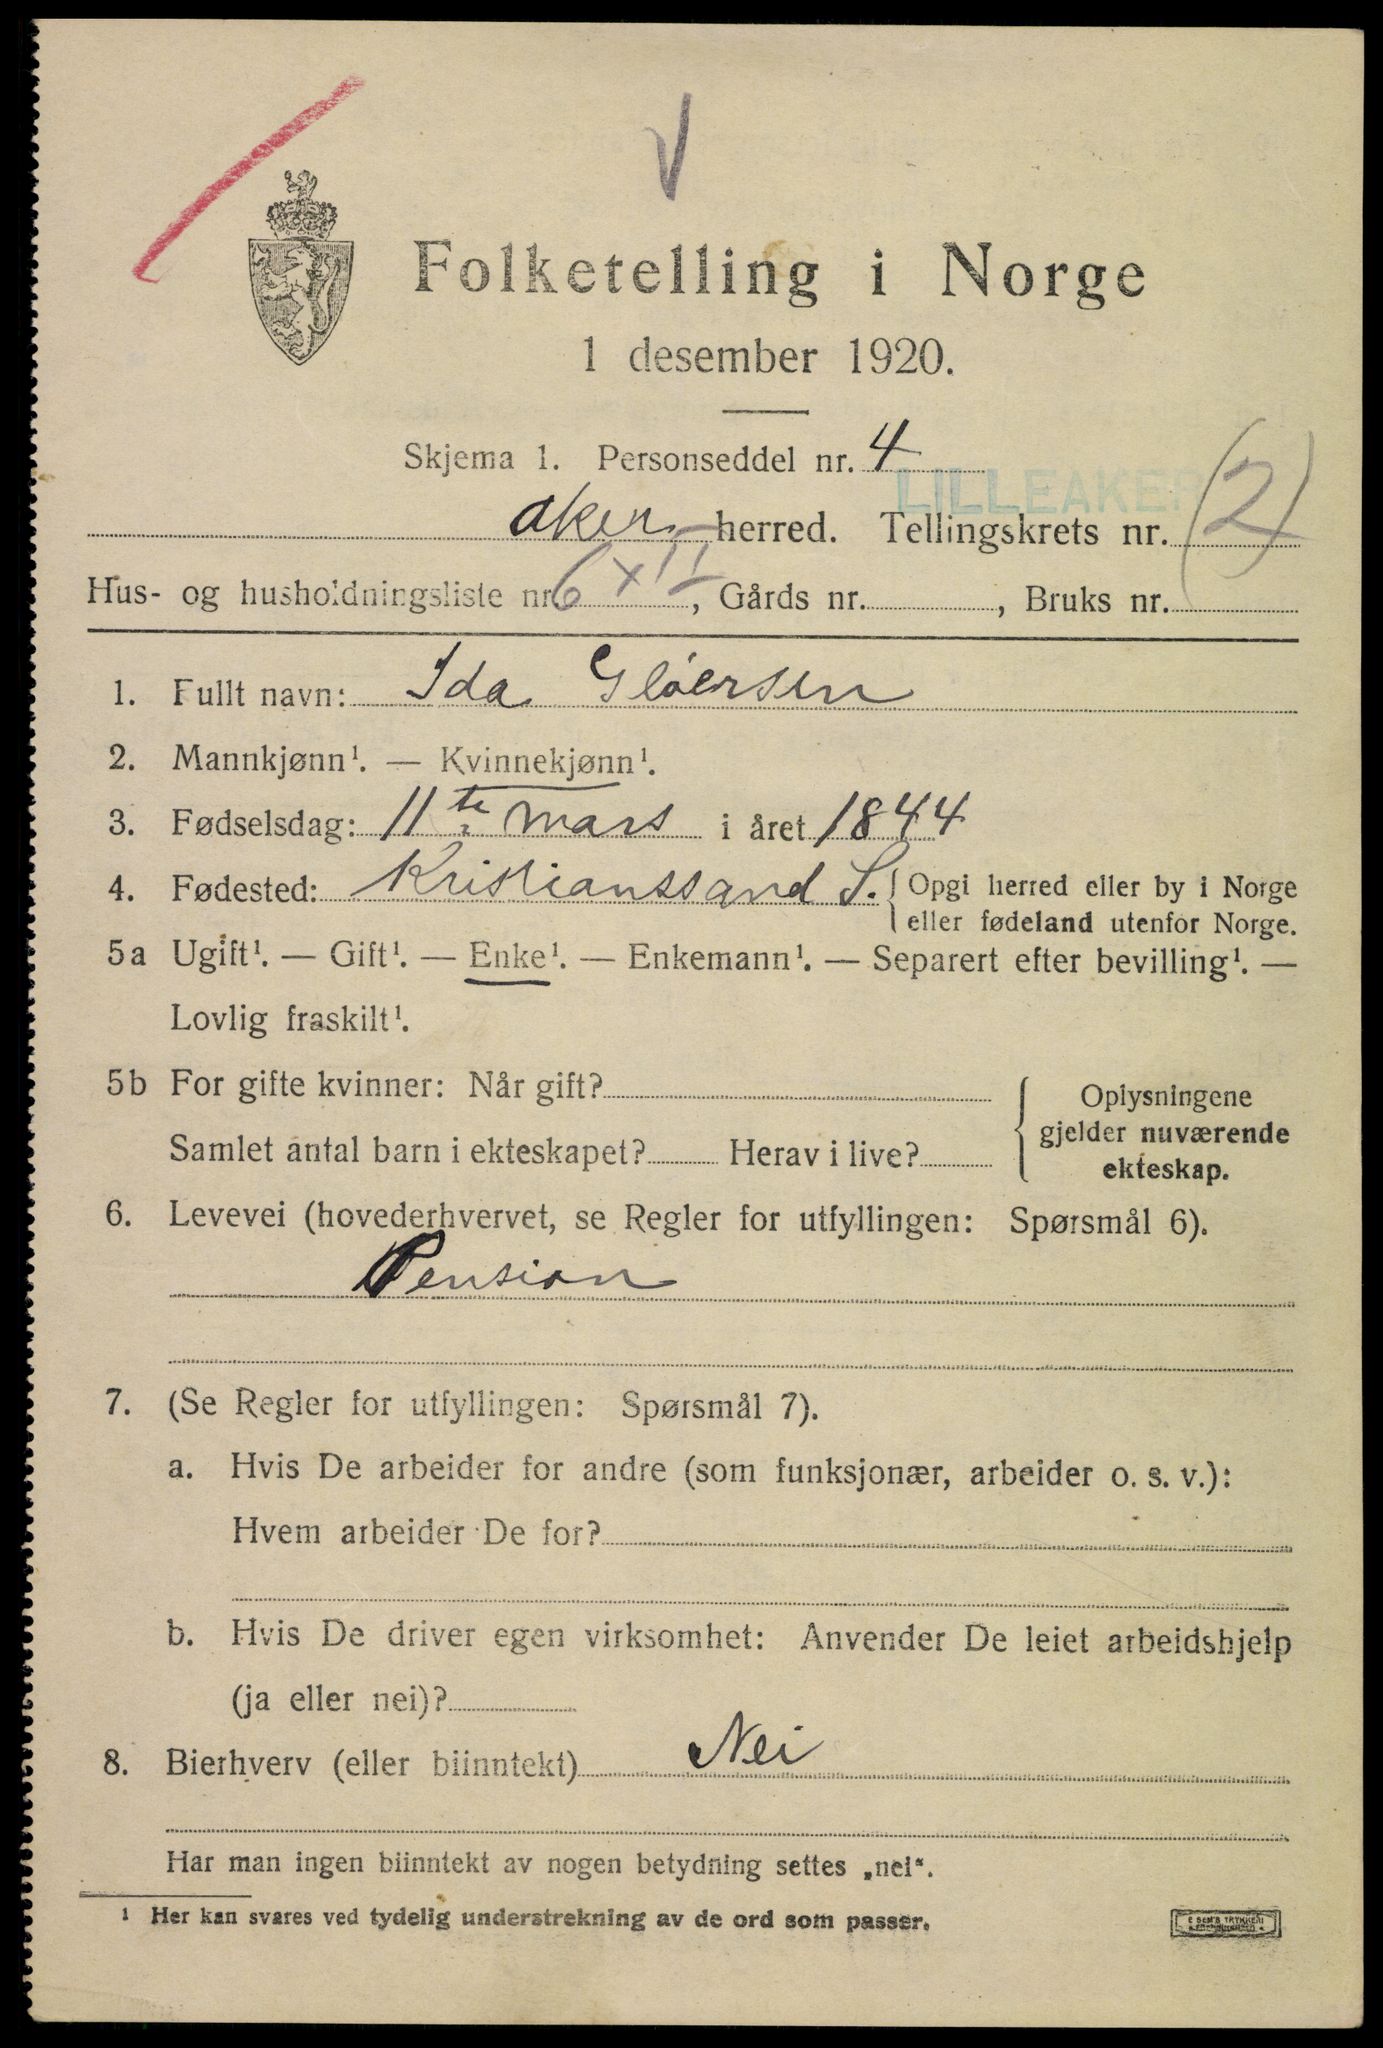 Folketelling i Norge
1 desember 1920.
Skjema 1. Personseddel nr. 4
LILLEAKER
Aker herred. Tellingskrets nr. (2)
Hus- og husholdningsliste nr. 6 XII, Gårds nr. , Bruks nr.
1. Fullt navn: Ida Gløersen
2. Mannkjønn¹. — Kvinnekjønn¹.
3. Fødselsdag: 11te mars i året 1844
4. Fødested: Kristianssand S. { Opgi herred eller by i Norge
eller fødeland utenfor Norge.
5a Ugift¹. — Gift¹. — Enke¹. — Enkemann¹. — Separert efter bevilling¹. —
Lovlig fraskilt¹.
5b For gifte kvinner: Når gift?
Samlet antal barn i ekteskapet? Herav i live?
Oplysningene
gjelder nuværende
ekteskap.
6. Levevei (hovederhvervet, se Regler for utfyllingen: Spørsmål 6).
Pension
7. (Se Regler for utfyllingen: Spørsmål 7).
a. Hvis De arbeider for andre (som funksjonær, arbeider o. s. v.):
Hvem arbeider De for?
b. Hvis De driver egen virksomhet: Anvender De leiet arbeidshjelp
(ja eller nei)?
8. Bierhverv (eller biinntekt) Nei
Har man ingen biinntekt av nogen betydning settes „nei“.
¹ Her kan svares ved tydelig understrekning av de ord som passer.